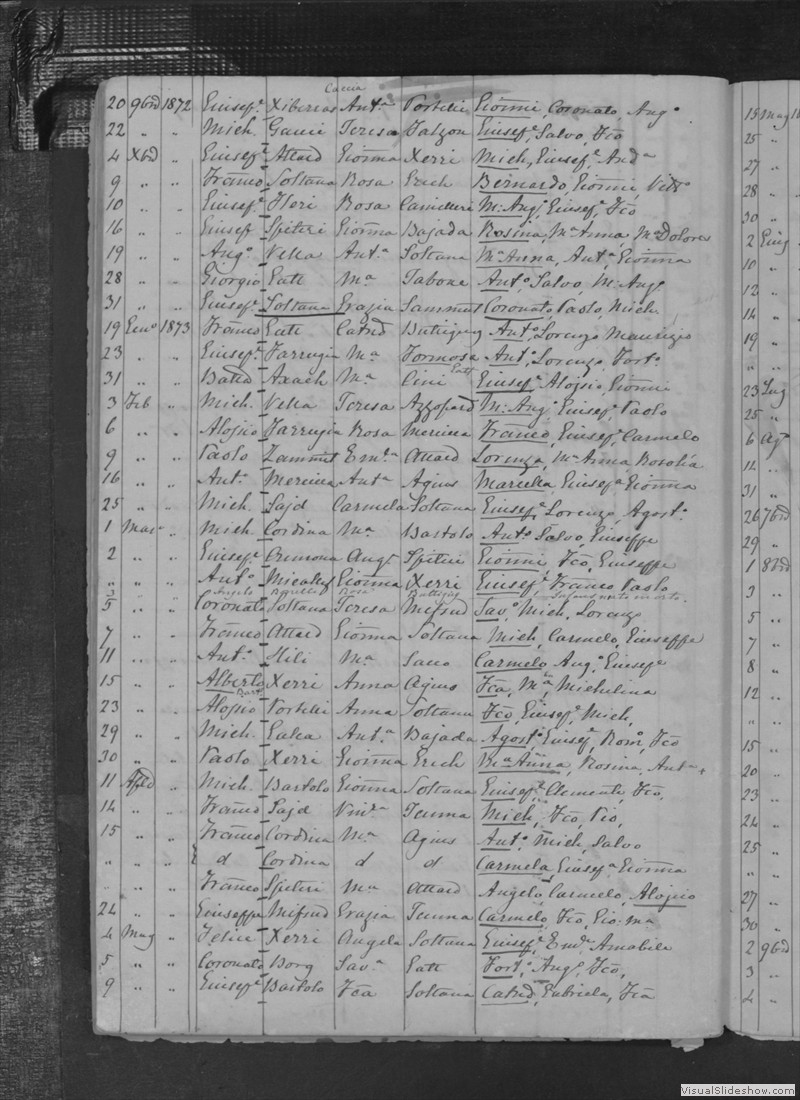 Cauia
20 9brd 1872 Giusefe Xiberras Anta Portelli Giomni, Coronato, Augo
22 " " Mich. Gauci Teresa Falzon Giusefe, Salvo, Fco
4 Xbd " Giusefe Attard Giomna Xerri Mich, Giusefe, Anda
9 " " Franco Soltana Rosa Grech Bernardo, Giomni, Vitto
10 " " Giusefe Fleri Rosa Camilleri M: Ango, Giusefe, Fco
16 " " Giusef Spiteri Giomna Bajada Rosina, Ma Anna, Ma Dolores
19 " " Ango Vella Anta Soltana Ma Anna, Anta, Giomna
28 " " Giorgio Gatt Ma Tabone Anto, Salvo, M: Ango
31 " " Giusefe Soltana Grazia Sammut Coronato, Paolo, Mich.
19 Geno 1873 Franco Gatt Catnd Buttigieg Anto, Lorenzo, Maurizio
23 " " Giusefe Farrugia Ma Formosa Anto, Lorenzo, Forto
Gatt
31 " " Batta Axach Ma Cini Giusefe, Alojsio, Giomni
3 Feb " Mich. Vella Teresa Azzopard M: Ango, Giusefe, Paolo
6 " " Alojsio Farrugia Rosa Mercieca Franco, Giusefe, Carmelo
9 " " Paolo Zammit Emla Attard Lorenza, Ma Anna, Rosolia
16 " " Anto Mercieca Anta Agius Mariella, Giusefa, Giomna
25 " " Mich. Sajd Carmela Soltana Giusefe, Lorenzo, Agosto
1 Marzo " Mich Cordina Ma Bartolo Anto, Salvo, Giuseppe
2 " " Giusefe Cremona Anga Spiteri Giomni, Fco, Giuseppe
" " " Anto Micallef Giomna Xerri Giusefe, Franco, Paolo
3 Angelo Rosa Buttigieg
5 " " Coronato Soltana Teresa Mifsud Savo, Mich, Lorenzo
7 " " Franco Attard Giomna Soltana Mich, Carmelo, Giuseppe
11 " " Anto Hili Ma Saco Carmelo, Augo, Giusefe
15 " " Alberto Xerri Anna Agius Fca, Ma, Michelina
Bart
23 " " Alojsio Portelli Anna Soltana Fco, Giusefe, Mich,
29 " " Mich. Galea Anta Bajada Agosto, Giusefe, Romo, Fco
30 " " Paolo Xerri Giomna Grech Ma Anna, Rosina, Anta
11 Apld " Mich. Bartolo Giomna Soltana Giusefe, Clemente, Fco,
14 " " Franco Sajd Vinra Teuma Mich, Fco, Pio,
15 " " Franco Cordina Ma Agius Anto, Mich, Salvo
" " " d Cordina d d Carmela, Giusefa, Giomna
" " " Franco Spiteri Ma Attard Angelo, Carmelo, Alojsio
24 " " Giuseppe Mifsud Grazia Teuma Carmelo, Fco, Gio: Ma
4 Mag " Felice Xerri Angela Soltana Giusefe, Emle, Amabile
5 " " Coronato Borg Sava Gatt Forto, Ango, Fco,
9 " " Giusefe Bartolo Fca Soltana Catnd, Gabriela, Fca
15 Mag 18
25 "
27 "
28 "
30 "
2 Giug
10 "
12 "
14 "
19 "
" "
23 Lug
25 "
6 Ago
12 "
31 "
26 7brd
29 "
1 8brd
3 "
5 "
7 "
8 "
12 "
" "
15 "
20 "
23 "
24 "
25 "
" "
27 "
30 "
2 9brd
3 "
4 "
VisualSlideshow.com